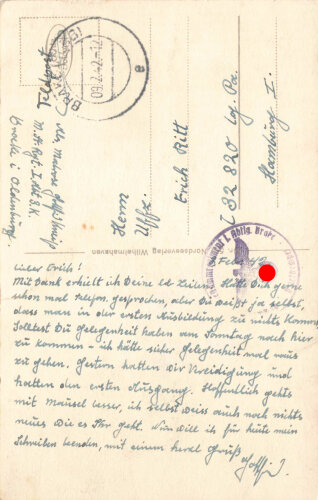 Feldpost
Brake i. Oldenburg
Herrn
Uffz.
Erich Ritt
L 32 820 Lg. Pa.
Hamburg 1.
Nordseeverlag Wilhelmshaven
Lieber Erich!
Mit Dank erhielt ich Deine Hätte Dich gerne
schon mal telefon. gesprochen, aber Du weißt ja selbst,
dass man in der ersten Ausbildung zu nichts kommt.
Solltest Du Gelegenheit haben am Sonntag nach hier
zu kommen – ich hätte sicher Gelegenheit mal raus
zu gehen. Gestern hatten wir Vereidigung und
hatten den ersten Ausgang. Hoffentlich gehts
mit Mausel besser, ich selbst weiss auch noch nichts
neues wie es Ihr geht. Nun will ich für heute mein
Schreiben beenden, mit einem herzl. Gruß